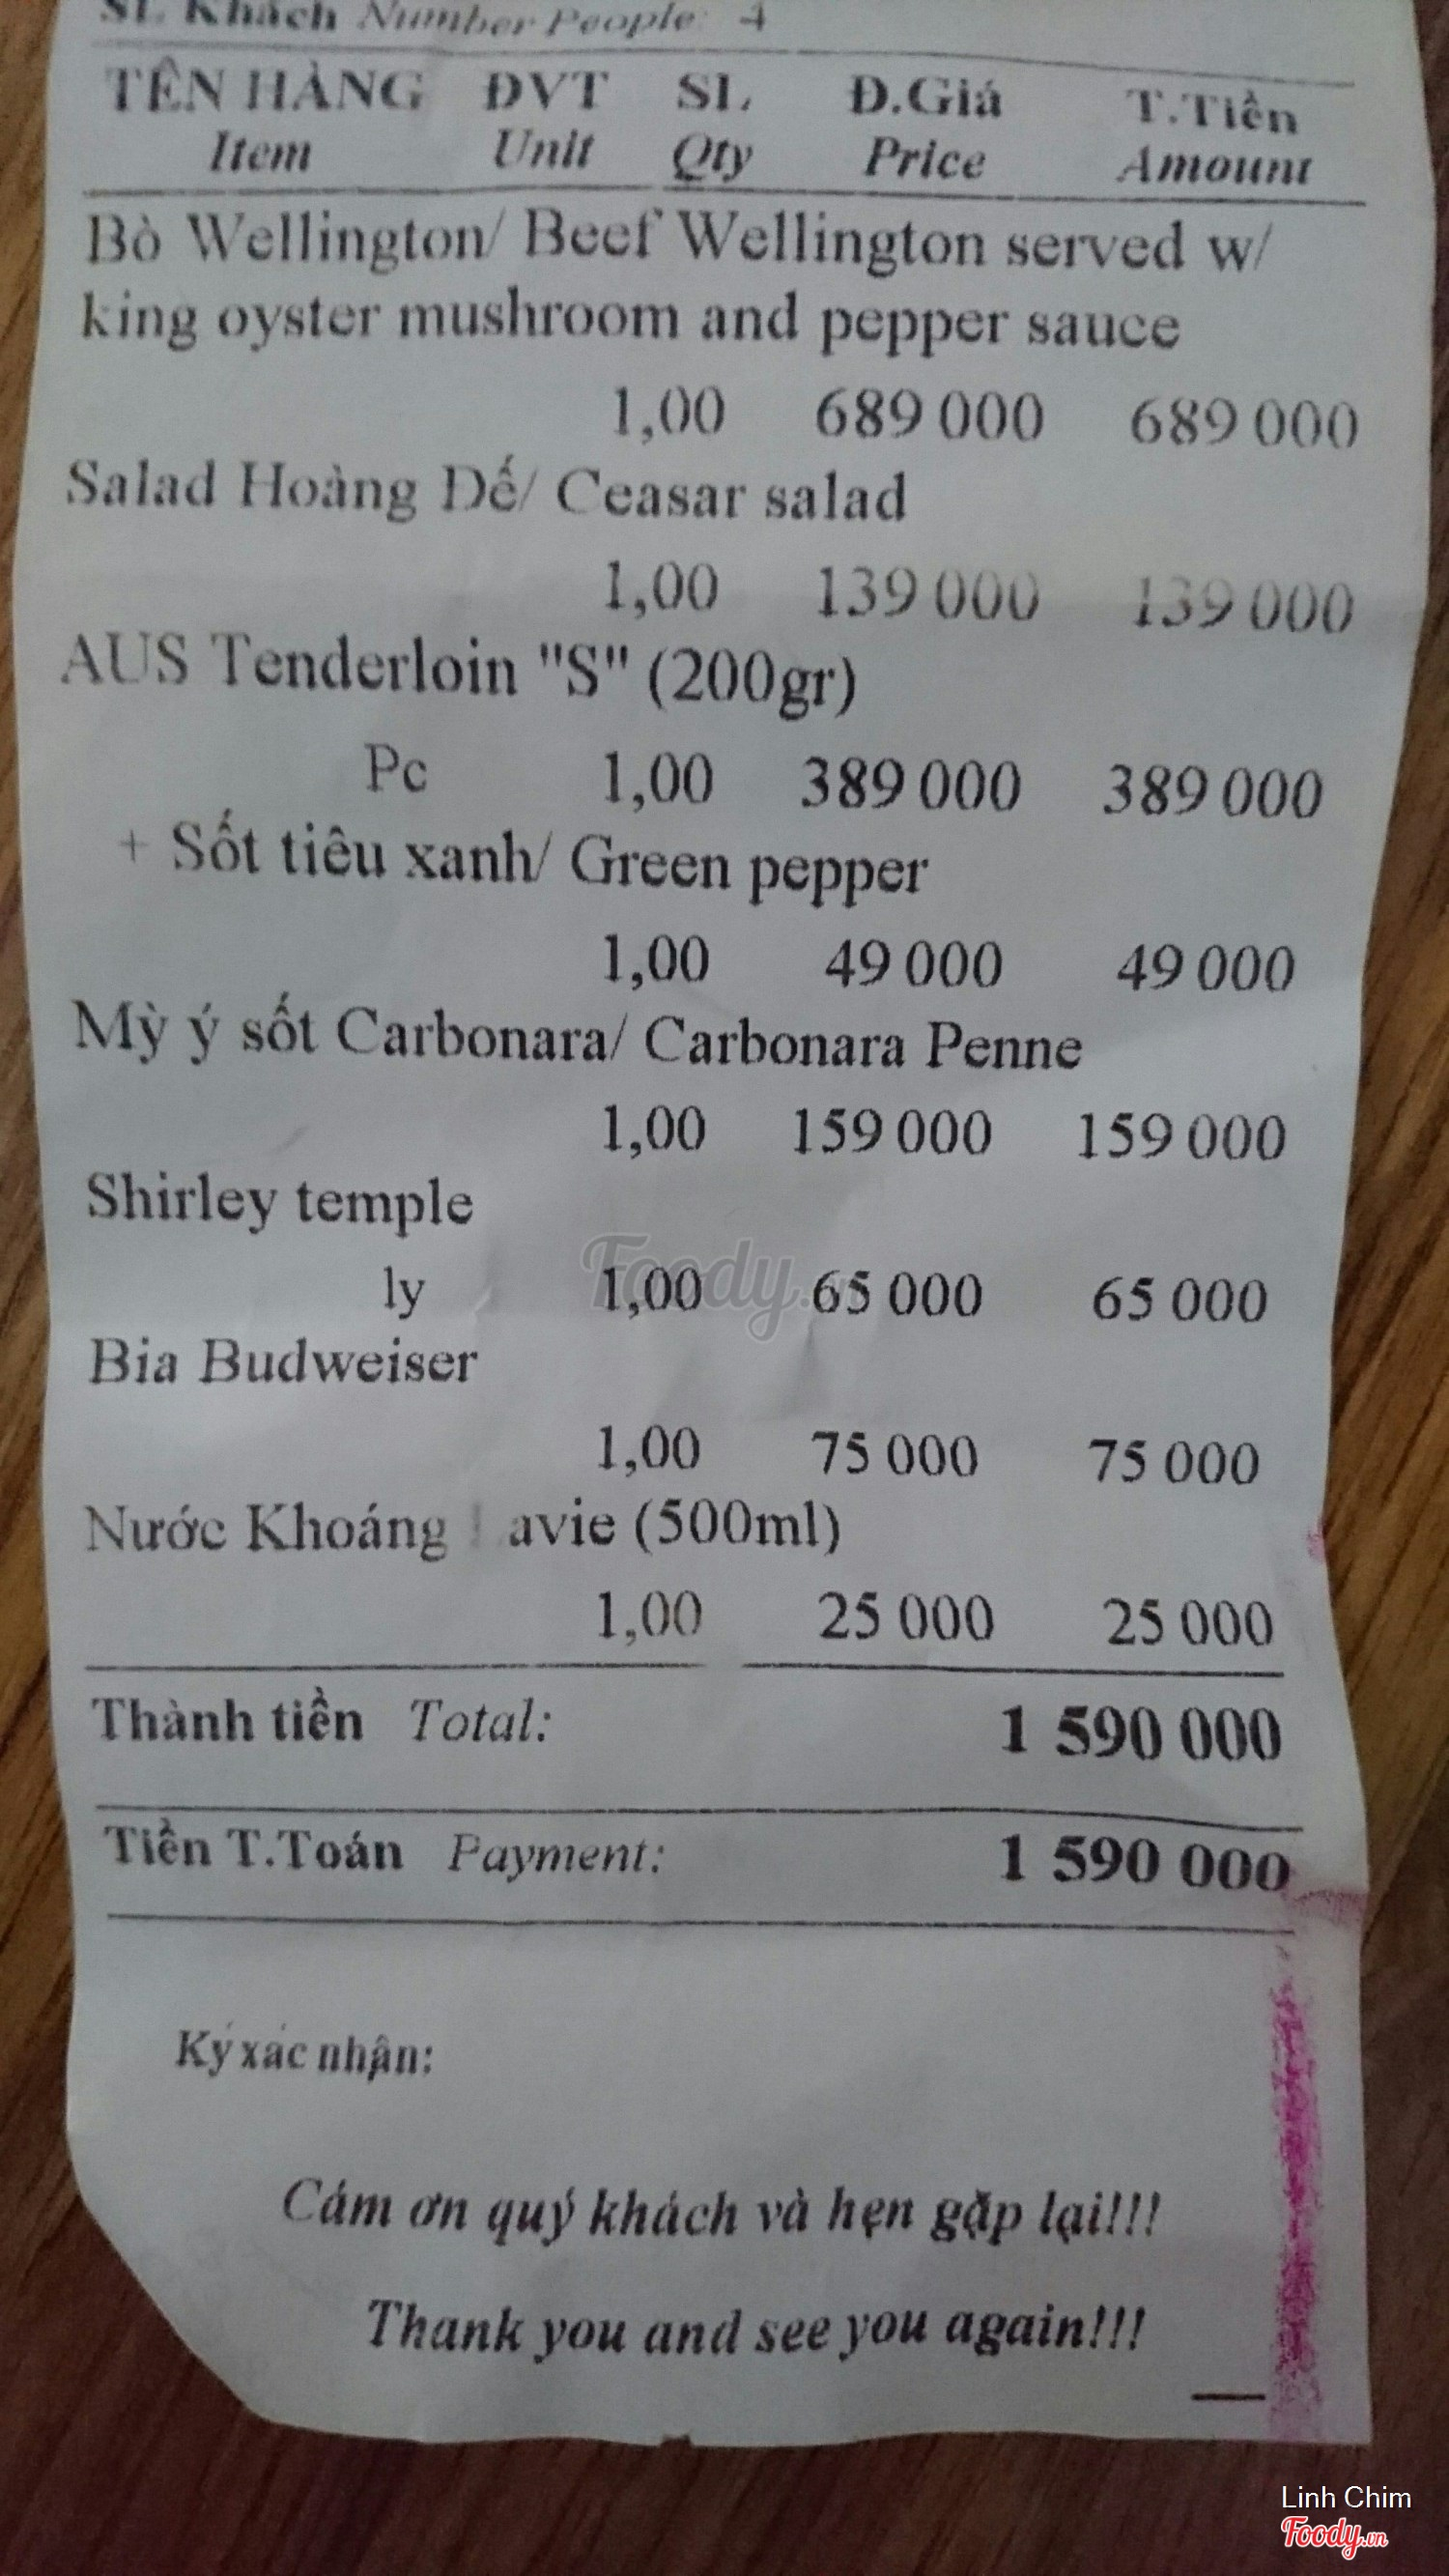 SL Khách Number People: 4
TÊN HÀNG ĐVT SL Đ.Giá T.Tiền
Item Unit Qty Price Amount
Bò Wellington/ Beef Wellington served w/
king oyster mushroom and pepper sauce
1,00 689 000 689 000
Salad Hoàng Dế/ Ceasar salad
1,00 139 000 139 000
AUS Tenderloin "S" (200gr)
Pc 1,00 389 000 389 000
+ Sốt tiêu xanh/ Green pepper
1,00 49 000 49 000
Mỳ ý sốt Carbonara/ Carbonara Penne
1,00 159 000 159 000
Shirley temple
ly 1,00 65 000 65 000
Foody.vn
Bia Budweiser
1,00 75 000 75 000
Nước Khoáng Lavie (500ml)
1,00 25 000 25 000
Thành tiền Total: 1 590 000
Tiền T.Toán Payment: 1 590 000
Ký xác nhận:
Cám ơn quý khách và hẹn gặp lại!!!
Thank you and see you again!!!
Linh Chim
Foody.vn